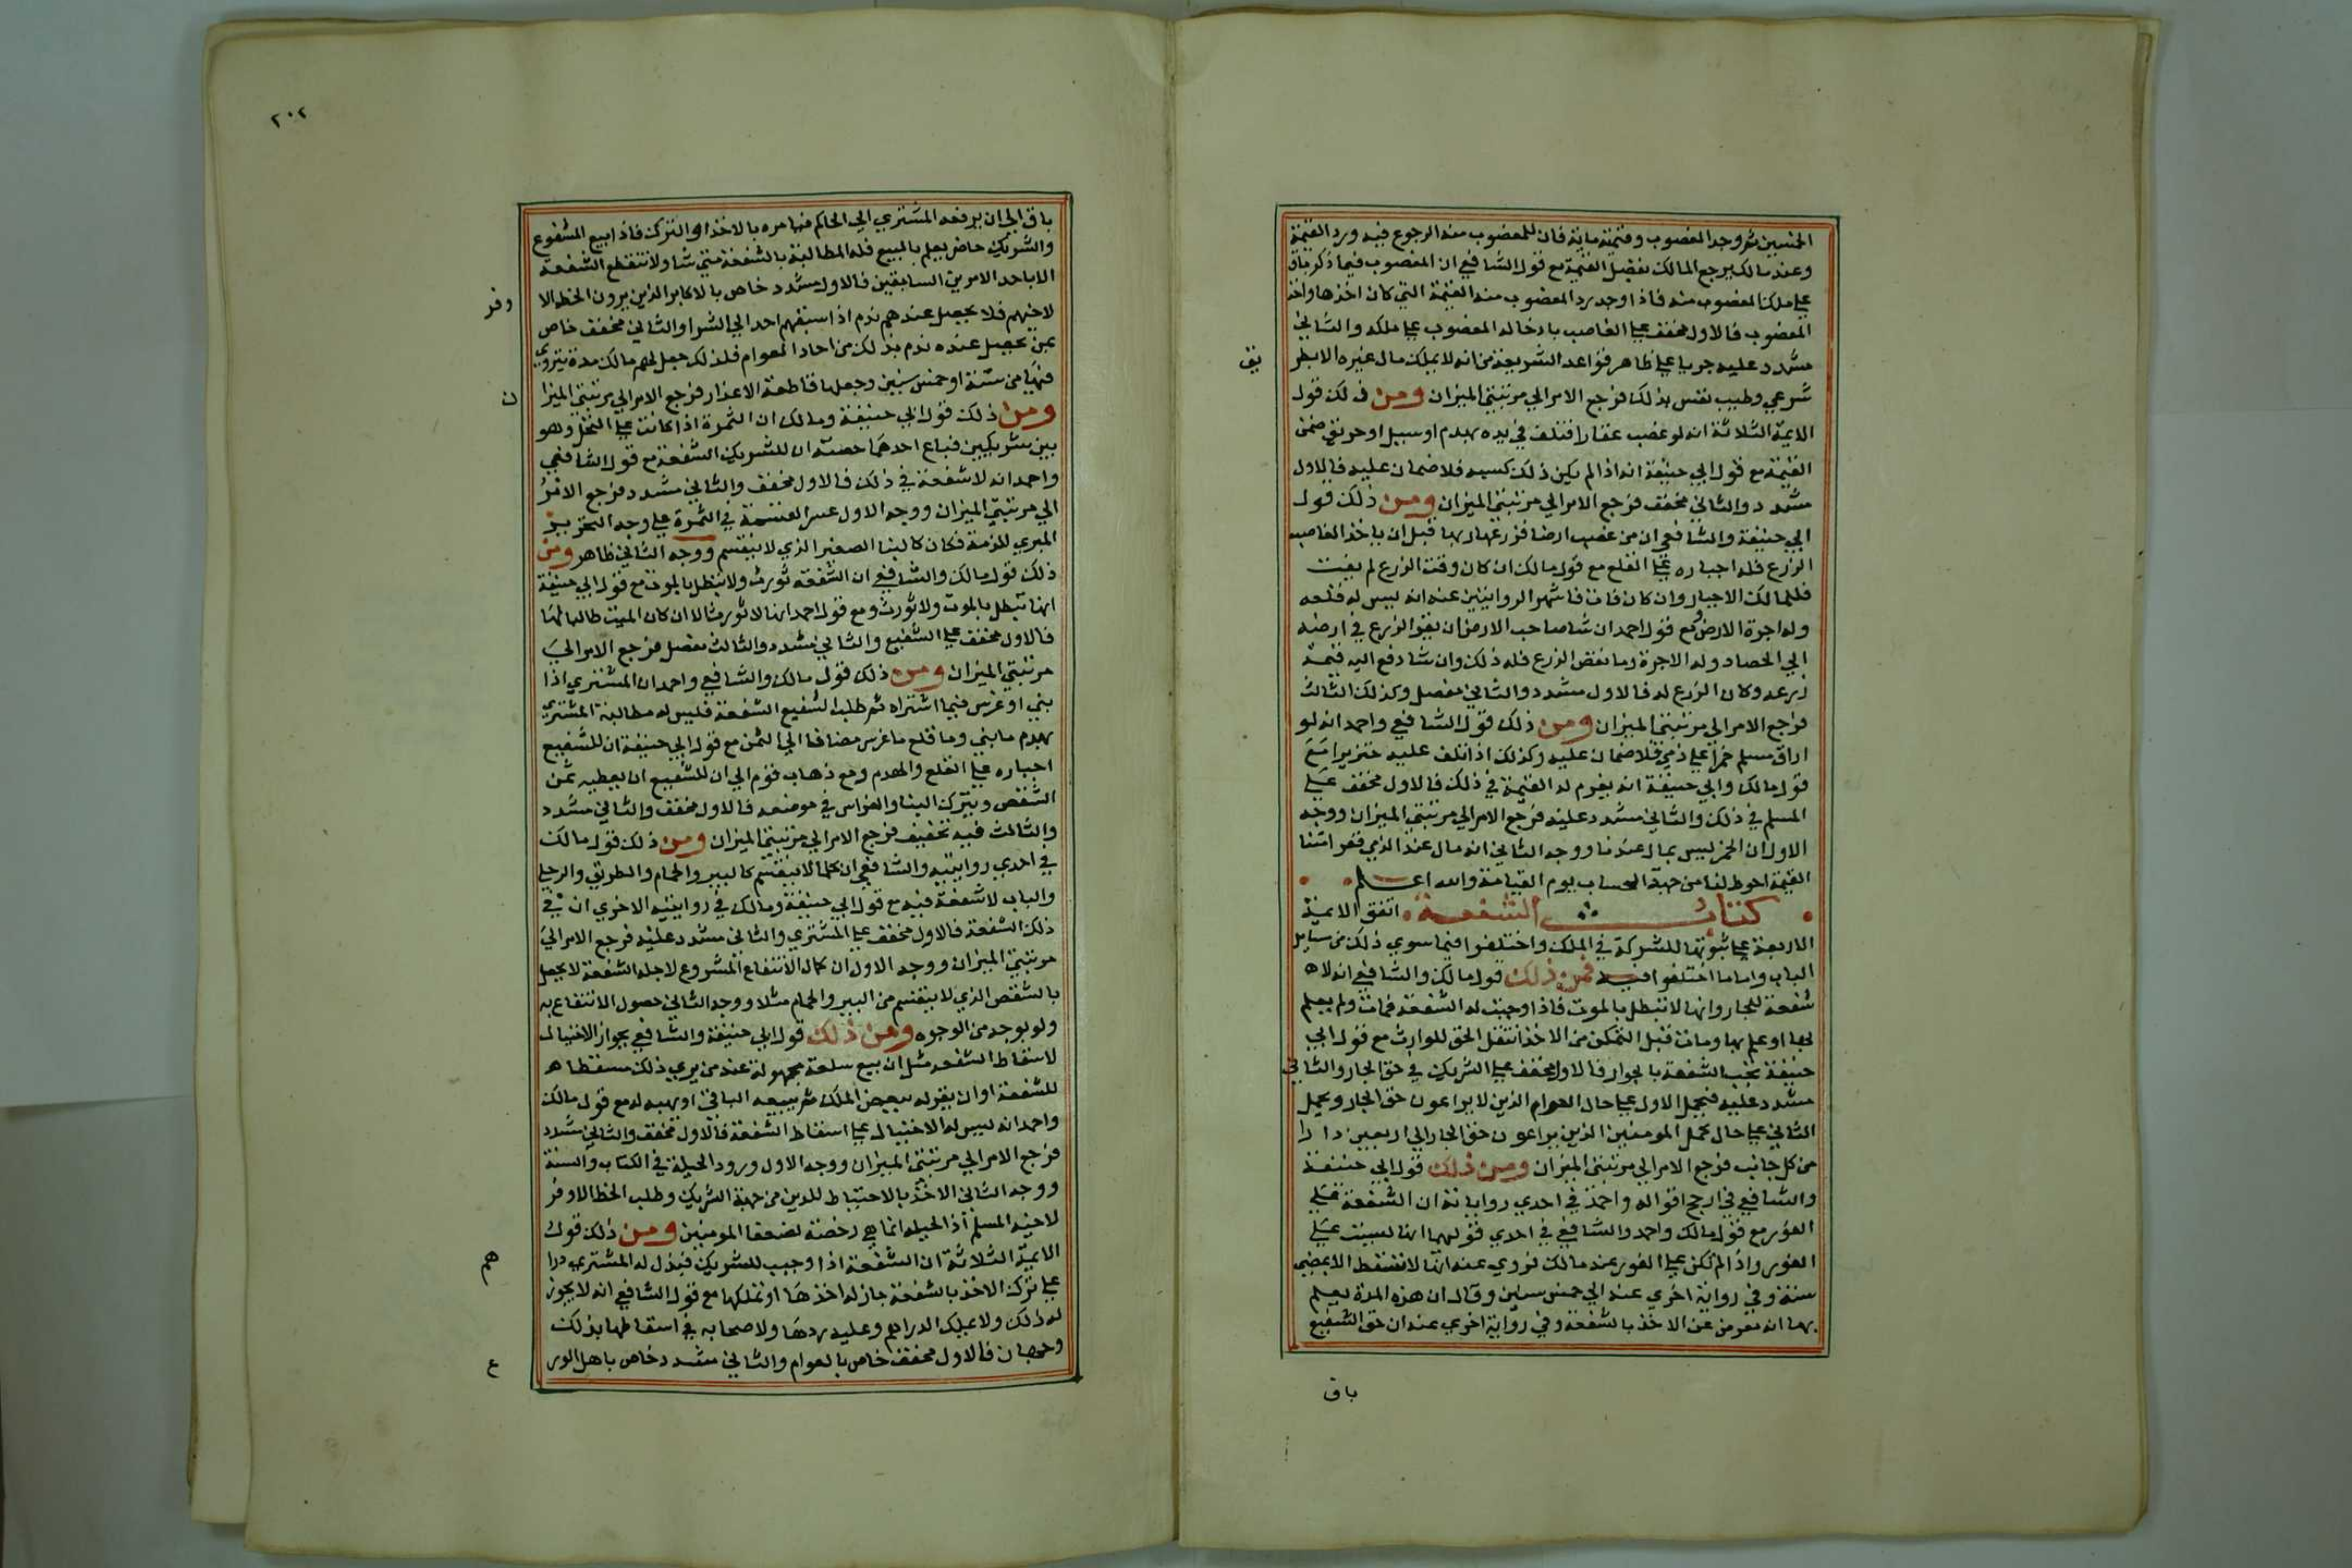 الخمسين ثم وجد المغصوب وقيمته ماية فان للمغصوب منه الرجوع فيه ورد القيمة
وعند مالك يرجع المالك بفضل القيمة مع قول الشافعي ان المغصوب فيما ذكر باق
على ملك المغصوب منه فاذا وجد رد المغصوب منه القيمة التي كان اخذها واخذ
المغصوب فالاول مخفف على الغاصب بادخاله المغصوب على ملكه والثاني
مشدد عليه جريا على ظاهر قواعد الشريعة من انه لا يملك مال غيره الا بطر
يق
شرعي وطيب نفس بذلك فرجع الامر الي مرتبتي الميزان ومن ذلك قول
الايمة الثلاثة انه لو غصب عقارا فتلف في يده بهدم او سيل او حريق ضمن
القيمة مع قول ابي حنيفة انه اذا لم يكن ذلك كسبه فلا ضمان عليه فالاول
مشدد والثاني مخفف فرجع الامر الي مرتبتي الميزان ومن ذلك قول
ابي حنيفة والشافعي ان من غصب ارضا فزرعها ربها قبل ان ياخذ الغاصب
الزرع فله اجباره على القلع مع قول مالك ان كان وقت الزرع لم يفت
فللمالك الاجبار وان كان فات فاشهر الروايتين عنه انه ليس له قلعه
وله اجرة الارض ومع قول احمد ان شا صاحب الارض ان يقر الزرع في ارضه
الي الحصاد وله الاجرة وما نقص الزرع فله ذلك وان شا دفع اليه قيمة
زرعه وكان الزرع له فالاول مشدد والثاني مفصل وكذلك الثالث
فرجع الامر الي مرتبتي الميزان ومن ذلك قول الشافعي واحمد انه لو
اراق مسلم خمرا على ذمي فلا ضمان عليه وكذلك اذا اتلف عليه خنزيرا مع
قول مالك وابي حنيفة انه يغرم له القيمة في ذلك فالاول مخفف على
المسلم في ذلك والثاني مشدد عليه فرجع الامر الي مرتبتي الميزان ووجه
الاول ان الخمر ليس بمال عندنا ووجه الثاني انه مال عند الذمي فغرامتنا
القيمة احوط لنا من جهة الحساب يوم القيامة والله اعلم
كتاب الشفعة اتفق الايمة
الاربعة على ثبوتها للشركة في الملك واختلفوا فيما سوي ذلك من مسايل
الباب واما ما اختلفوا فيه فمن ذلك قول مالك والشافعي انه لا
شفعة للجار وانها لا تبطل بالموت فاذا وجبت له الشفعة فمات ولم يعلم
بها او علم بها ومات قبل التمكن من الاخذ انتقل الحق للوارث مع قول ابي
حنيفة تجب الشفعة بالجوار فالاول مخفف على الشريك في حق الجار والثاني
مشدد عليه فيحمل الاول على حال العوام الذين لا يراعون حق الجار ويحمل
الثاني على حال كمل المومنين الذين يراعون حق الجار الي اربعين دارا
من كل جانب فرجع الامر الي مرتبتي الميزان ومن ذلك قول ابي حنيفة
والشافعي في ارجح اقواله واحمد في احدي رواياته ان الشفعة على
الفور مع قول مالك واحمد والشافعي في احدي قوليهما انها ليست على
الفور واذا لم تكن على الفور عند مالك فروي عنه انها لا تسقط الا بمضي
سنة وفي رواية اخري عنه الي خمس سنين وقال ان هذه المدة يعلم
بها انه معرض عن الاخذ بالشفعة وفي رواية اخري عنه ان حق الشفيع
باق
٢٠٢
باق الي ان يرفعه المشتري الي الحاكم فيامره بالاخذ او الترك فاذا بيع المشفوع
والشريك حاضر يعلم بالمبيع فله المطالبة بالشفعة متي شا ولا تنقطع الشفعة
الا باحد الامرين السابقين فالاول مشدد خاص بالاكابر الذين يرون الحظ الا
وفر
لاخيهم فلا يحصل عندهم ندم اذا سبقهم احد الي الشرا والثاني مخفف خاص
بمن يحصل عنده ندم بذلك من احاد العوام فلذلك جعل لهم مالك مدة يتروي
فيها من سنة او خمس سنين وجعلها قاطعة الاعذار فرجع الامر الي مرتبتي الميزا
ن
ومن ذلك قول ابي حنيفة ومالك ان الثمرة اذا كانت على النخل وهو
بين شريكين فباع احدهما حصته ان للشريك الشفعة مع قول الشافعي
واحمد انه لا شفعة في ذلك فالاول مخفف والثاني مشدد فرجع الامر
الي مرتبتي الميزان ووجه الاول عسر القسمة في الثمرة على وجه التحرير
المبري للذمة فكان كالبنا الصغير الذي لا ينقسم ووجه الثاني ظاهر ومن
ذلك قول مالك والشافعي ان الشفعة تورث ولا تبطل بالموت مع قول ابي حنيفة
انها تبطل بالموت ولا تورث ومع قول احمد انها لا تورث الا ان كان الميت طالبا لها
فالاول مخفف على الشفيع والثاني مشدد والثالث مفصل فرجع الامر الي
مرتبتي الميزان ومن ذلك قول مالك والشافعي واحمد ان المشتري اذا
بني او غرس فيما اشتراه ثم طلب الشفيع الشفعة فليس له مطالبة المشتري
بهدم ما بني وما قلع ما غرس مضافا الي الثمن مع قول ابي حنيفة ان للشفيع
اجباره على القلع والهدم ومع ذهاب قوم الي ان للشفيع ان يعطيه ثمن
الشقص ويترك البنا والغراس في موضعه فالاول مخفف والثاني مشدد
والثالث فيه تخفيف فرجع الامر الي مرتبتي الميزان ومن ذلك قول مالك
في احدي روايتيه والشافعي ان كلما لا ينقسم كالبير والحمام والطريق والرحي
والباب لا شفعة فيه مع قول ابي حنيفة ومالك في روايتيه الاخري ان في
ذلك الشفعة فالاول مخفف على المشتري والثاني مشدد عليه فرجع الامر الي
مرتبتي الميزان ووجه الاول ان كمال الانتفاع المشروع لاجله الشفعة لا يحصل
بالشقص الذي لا ينقسم من البير والحمام مثلا ووجه الثاني حصول الانتفاع به
ولو بوجه من الوجوه ومن ذلك قول ابي حنيفة والشافعي بجواز الاحتيال
لاسقاط الشفعه مثل ان بيع سلعة مجهولة عند من يري ذلك مسقطا
للشفعة او ان يقر له ببعض الملك ثم يبيعه الباقي او يهبه له مع قول مالك
واحمد انه ليس له الاحتيال على اسقاط الشفعة فالاول مخفف والثاني مشدد
فرجع الامر الي مرتبتي الميزان ووجه الاول ورود الحيلة في الكتاب والسنة
ووجه الثاني الاخذ بالاحتياط للدين من جهة الشريك وطلب الحظ الاوفر
لاخيه المسلم اذ الحيله انما هي رخصة لضعفا المومنين ومن ذلك قول
الايمة الثلاثة ان الشفعة اذا وجبت للشريك فبذل له المشتري درا
هم
على ترك الاخذ بالشفعة جاز له اخذها او تملكها مع قول الشافعي انه لا يجوز
له ذلك ولا يملك الدراهم وعليه ردها ولاصحابه في اسقاطها بذلك
وجهان فالاول مخفف خاص بالعوام والثاني مشدد خاص باهل الور
ع